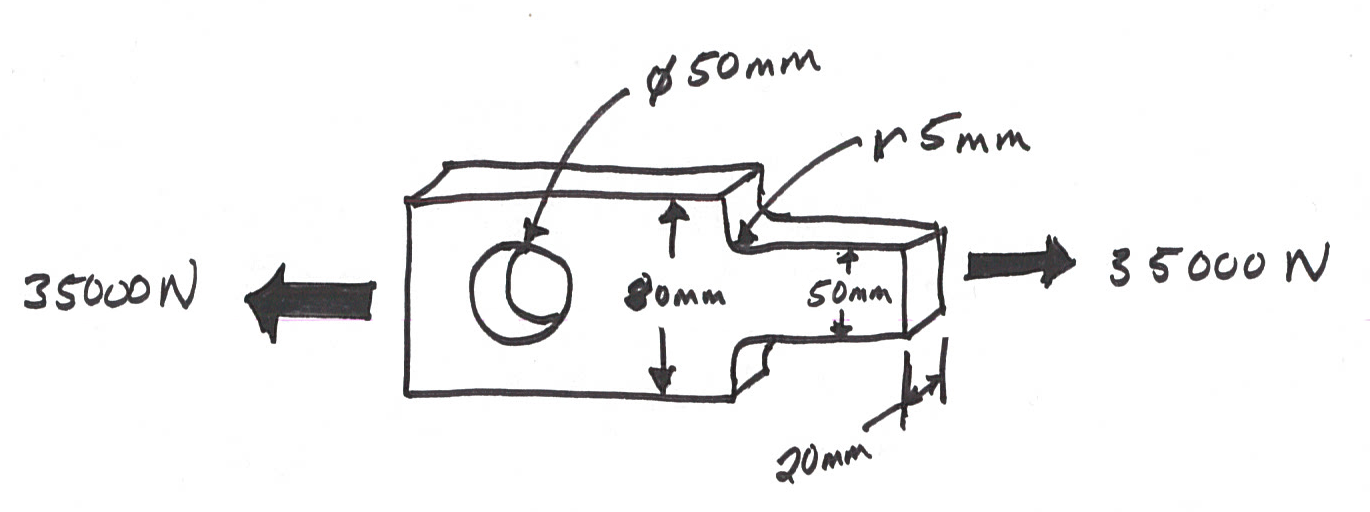 ϕ50mm
r5mm
35000N
80mm
50mm
35000N
20mm